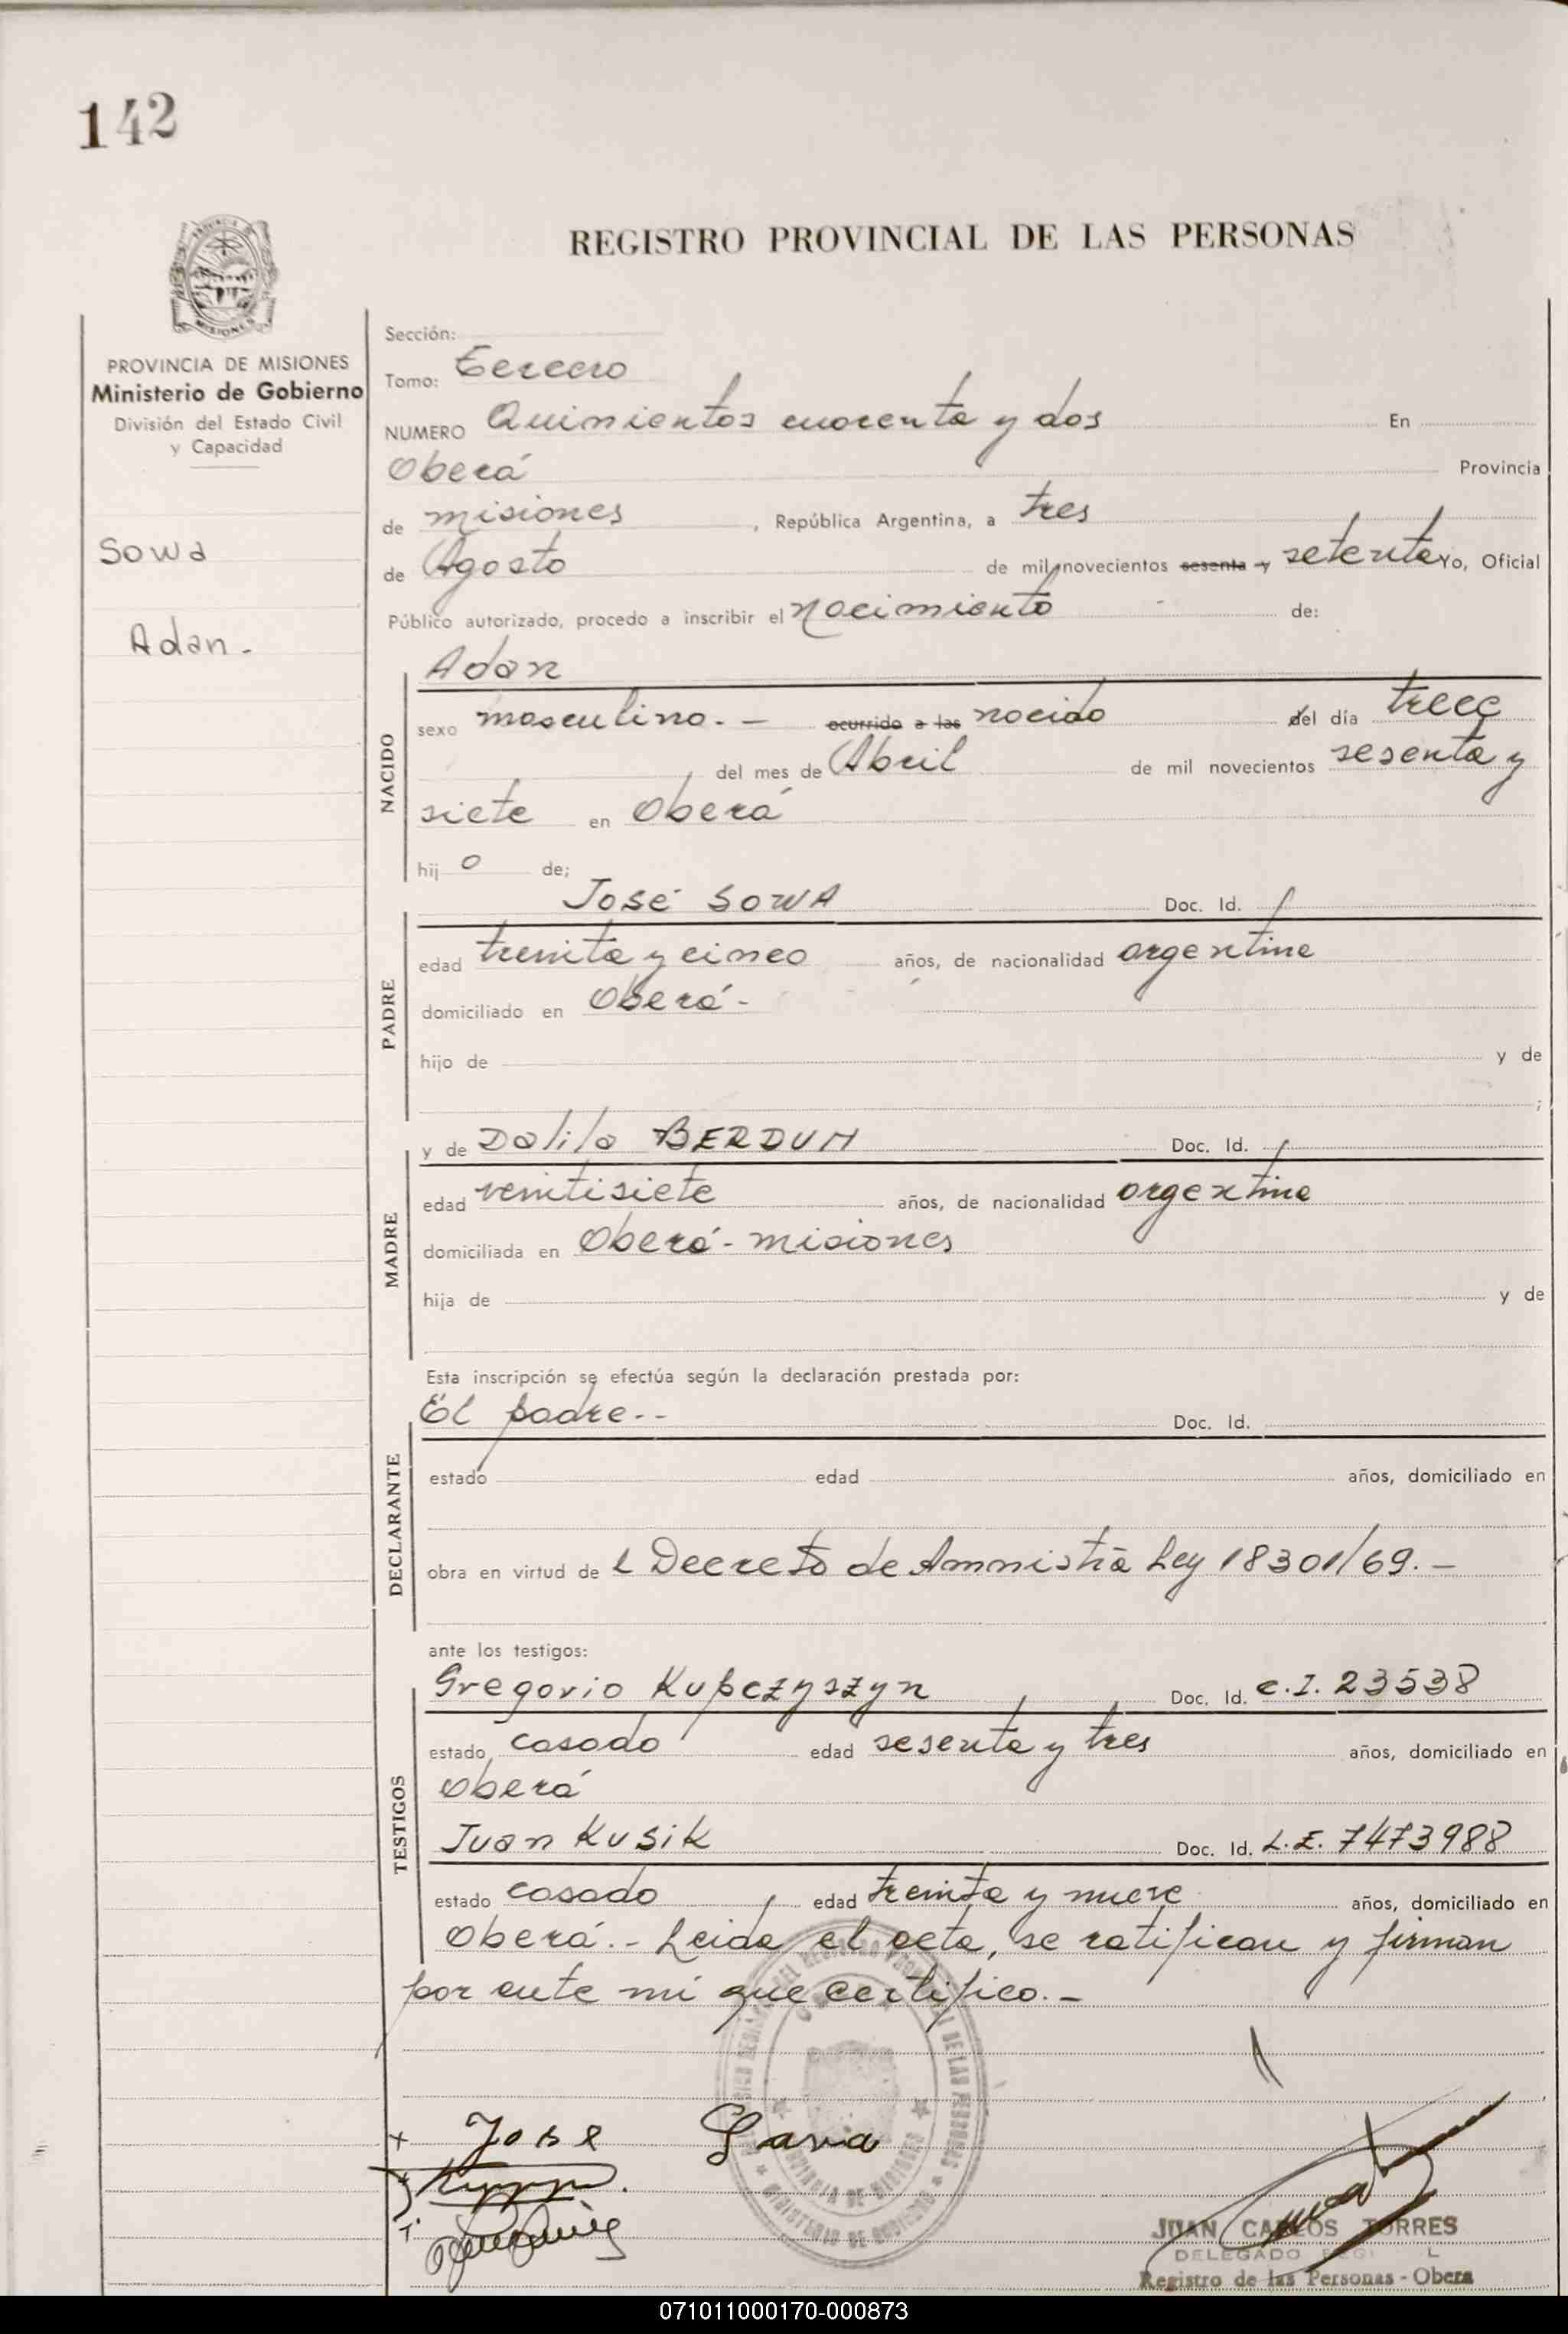 142
REGISTRO PROVINCIAL DE LAS PERSONAS
MISIONES
PROVINCIA DE MISIONES
Ministerio de Gobierno
División del Estado Civil
y Capacidad
Sowa
Adan.-
Sección:
Tomo: Tercero
NUMERO Quinientos cuarenta y dos En
Oberá Provincia
de misiones, República Argentina, a tres
de Agosto de mil novecientos sesenta y setenta Yo, Oficial
Público autorizado, procedo a inscribir el nacimiento de:
Adan
NACIDO
sexo masculino.- ocurrido a las nacido del día trece
del mes de Abril de mil novecientos sesenta y
siete en Oberá
hijo de;
José SOWA Doc. Id.
PADRE
edad treinta y cinco años, de nacionalidad argentina
domiciliado en Oberá-
hijo de y de
;
y de Dalila BERDUN Doc. Id.
MADRE
edad veintisiete años, de nacionalidad argentina
domiciliada en Oberá-misiones
hija de y de
Esta inscripción se efectúa según la declaración prestada por:
El padre.-- Doc. Id.
DECLARANTE
estado edad años, domiciliado en
obra en virtud de l Decreto de Amnistía Ley 18301/69.-
ante los testigos:
Gregorio Kupczyszyn Doc. Id. C.I. 23538
TESTIGOS
estado casado edad sesenta y tres años, domiciliado en
Oberá
Juan Kusik Doc. Id. L.E. 7473988
estado casado, edad treinta y nueve años, domiciliado en
Oberá.- Leida el acta, se ratifican y firman
por ante mi que certifico.-
Jose Sava
JUAN CARLOS TORRES
DELEGADO
Registro de las Personas - Obera
071011000170-000873